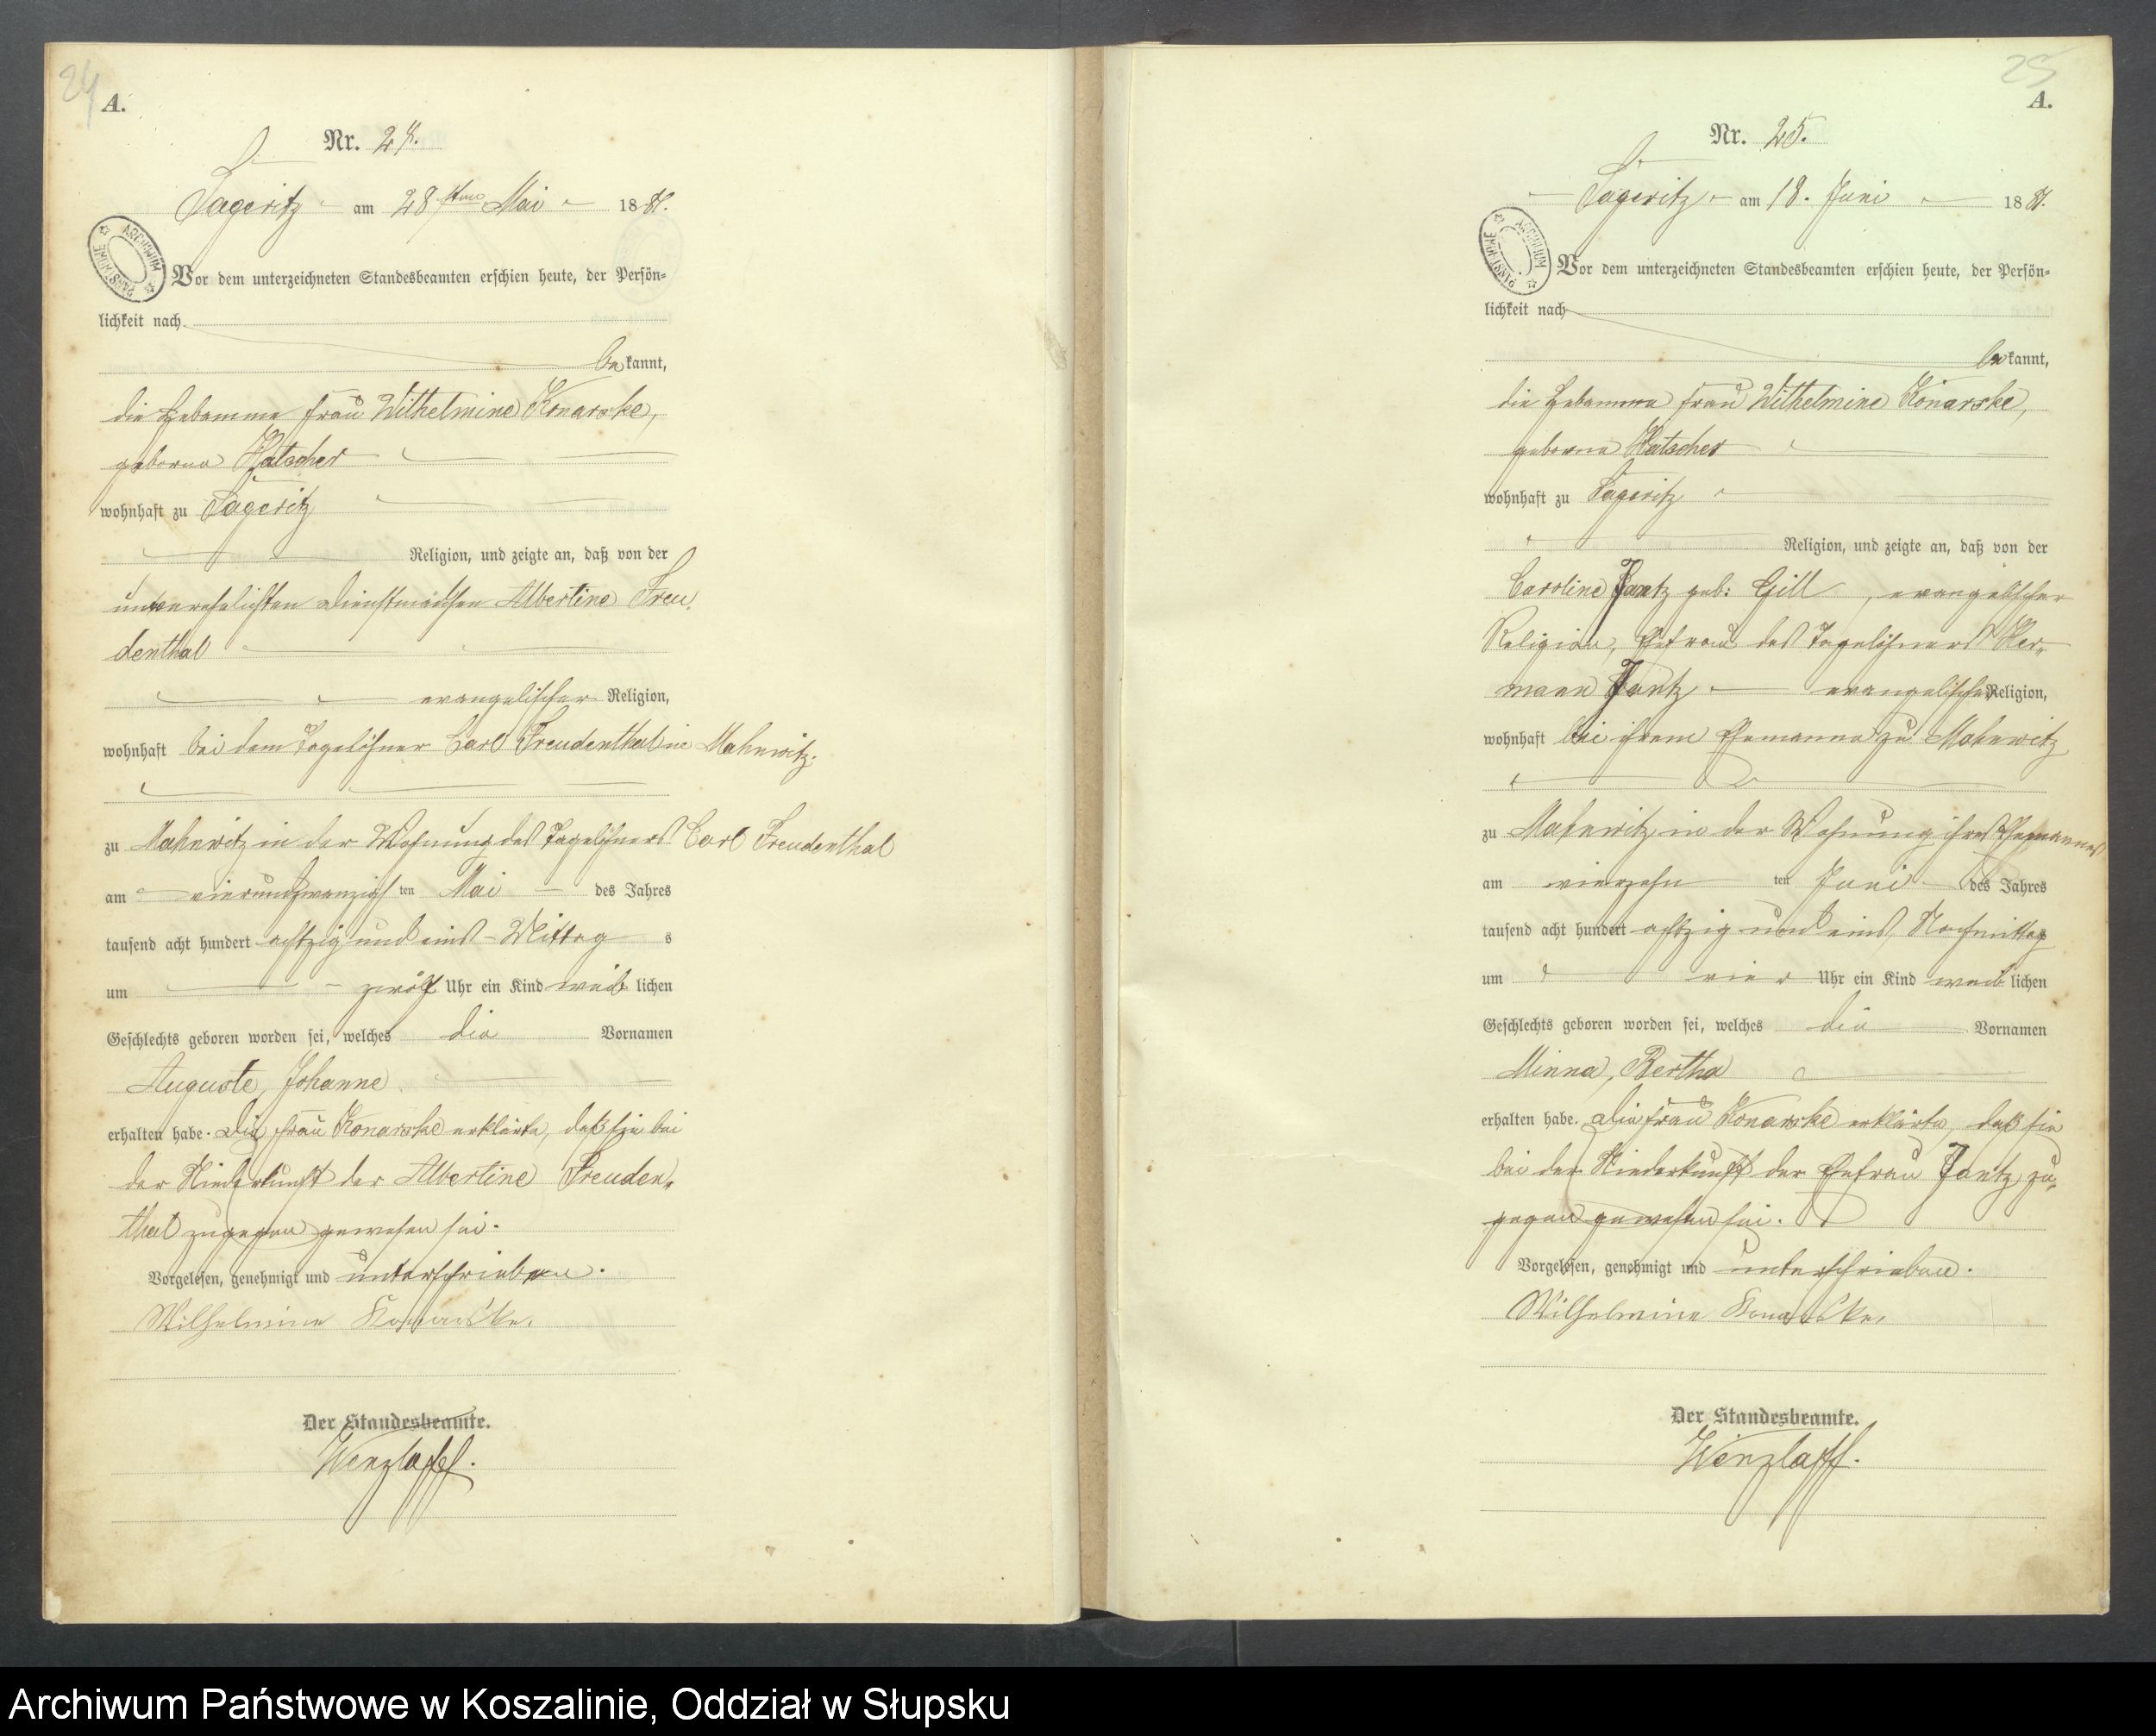 24
A.
Nr. 24.
Zageritz am 28ten Mai 1881.
ARCHIWUM PAŃSTWOWE
Vor dem unterzeichneten Standesbeamten erschien heute, der Persön-
lichkeit nach
bekannt,
die Hebamme Frau Wilhelmine Konarske,
geborne Hatscher
wohnhaft zu Zageritz
Religion, und zeigte an, daß von der
unverehelichten Dienstmädchen Albertine Freu-
denthal
evangelischer Religion,
wohnhaft bei dem Tagelöhner Carl Freudenthal in Mahnwitz.
zu Mahnwitz in der Wohnung des Tagelöhners Carl Freudenthal
am vierundzwanzigsten Mai des Jahres
tausend acht hundert achtzig und eins Mittags
um zwölf Uhr ein Kind weiblichen
Geschlechts geboren worden sei, welches die Vornamen
Auguste, Johanne
erhalten habe. Die Frau Konarske erklärte, daß sie bei
der Niederkunft der Albertine Freuden-
thal zugegen gewesen sei.
Vorgelesen, genehmigt und unterschrieben.
Wilhelmine Konarske.
Der Standesbeamte.
Wenzlaff.
25
A.
Nr. 25.
Zageritz am 18. Juni 1881.
ARCHIWUM PAŃSTWOWE
Vor dem unterzeichneten Standesbeamten erschien heute, der Persön-
lichkeit nach
bekannt,
die Hebamme Frau Wilhelmine Konarske,
geborne Hatscher
wohnhaft zu Zageritz
Religion, und zeigte an, daß von der
Caroline Jantz geb: Gill, evangelischer
Religion, Ehefrau des Tagelöhners Her-
mann Jantz evangelischer Religion,
wohnhaft bei ihrem Ehemanne zu Mahnwitz
zu Mahnwitz in der Wohnung ihres Ehemannes
am vierzehnten Juni des Jahres
tausend acht hundert achtzig und eins, Nachmittags
um vier Uhr ein Kind weiblichen
Geschlechts geboren worden sei, welches die Vornamen
Minna, Bertha
erhalten habe. Die Frau Konarske erklärte, daß sie
bei der Niederkunft der Ehefrau Jantz zu-
gegen gewesen sei.
Vorgelesen, genehmigt und unterschrieben.
Wilhelmine Konarske,
Der Standesbeamte.
Wenzlaff.
Archiwum Państwowe w Koszalinie, Oddział w Słupsku